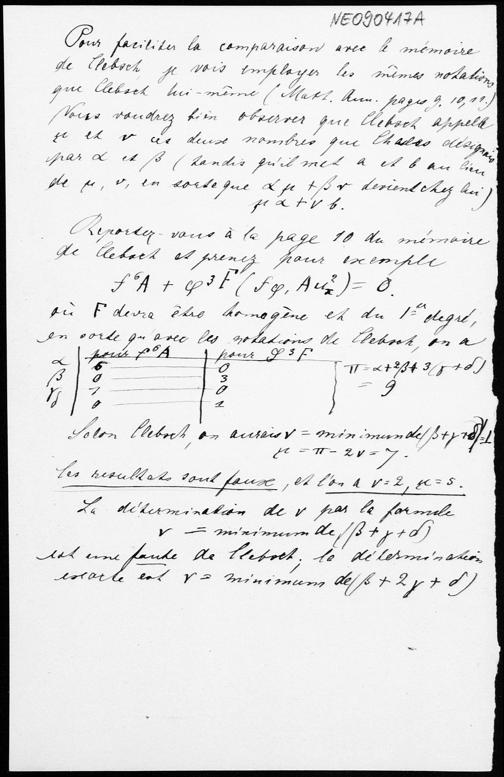 NE090417A
Pour faciliter la comparaison avec le mémoire
de Clebsch je vais employer les mêmes notations
que Clebsch lui-même (Math. Ann. pages 9, 10, 11.)
Vous voudrez bien observer que Clebsch appelle
μ et ν ces deux nombres que Chasles désignait
par α et β (tandis qu'il met a et b au lieu
de μ, ν, en sorte que αμ + βν devient chez lui)
μa + νb.
Reportez-vous à la page 10 du mémoire
de Clebsch et prenez pour exemple
f⁶A + φ³F(fφ, Au²ₓ) = 0.
où F devra être homogène et du 1er degré,
en sorte qu'avec les notations de Clebsch, on a
pour f⁶A pour φ³F
α 6 0 π = α+2β+3(γ+δ)
β 0 3 = 9
γ 1 0
δ 0 1
Selon Clebsch, on aurait ν = minimum de (β+γ+δ) = 1
μ = π - 2ν = 7.
Ces résultats sont faux, et l'on a ν=2, μ=5.
La détermination de ν par la formule
ν = minimum de (β+γ+δ)
est une faute de Clebsch; la détermination
exacte est ν = minimum de (β + 2γ + δ)